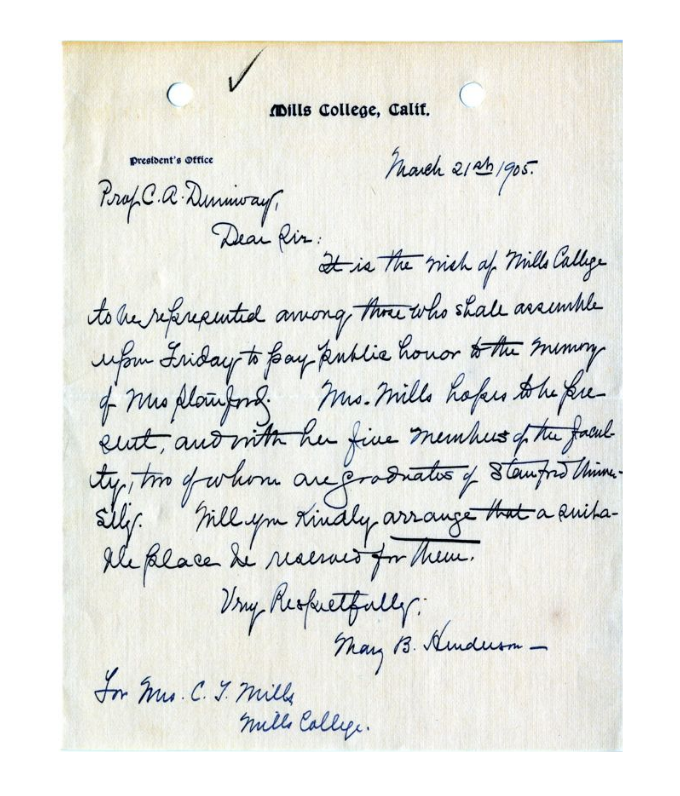 Mills College, Calif.
President's Office
March 21st 1905.
Prof. C. A. Duniway,
Dear Sir:
It is the wish of Mills College
to be represented among those who shall assemble
upon Friday to pay public honor to the memory
of Mrs Stanford. Mrs. Mills hopes to be pre-
sent, and with her five members of the facul-
ty, two of whom are graduates of Stanford Univer-
sity. Will you kindly arrange that a suita-
ble place be reserved for them.
Very Respectfully;
Mary B. Henderson —
For Mrs. C. T. Mills
Mills College.